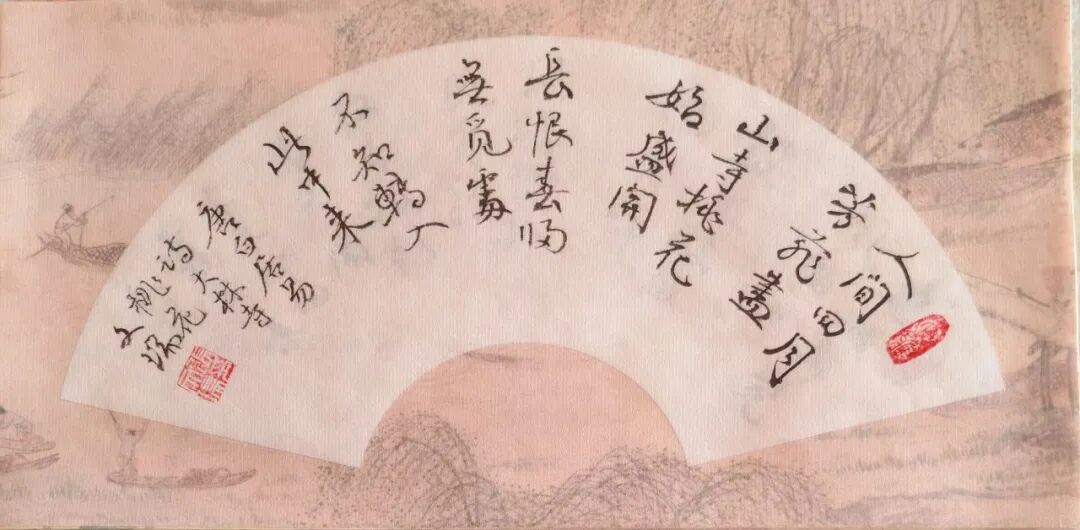 人间四月
芳菲盡
山寺桃花
始盛開
長恨春归
無觅處
不知轉入
此中来
唐白居易
诗大林寺
桃花
文瑞